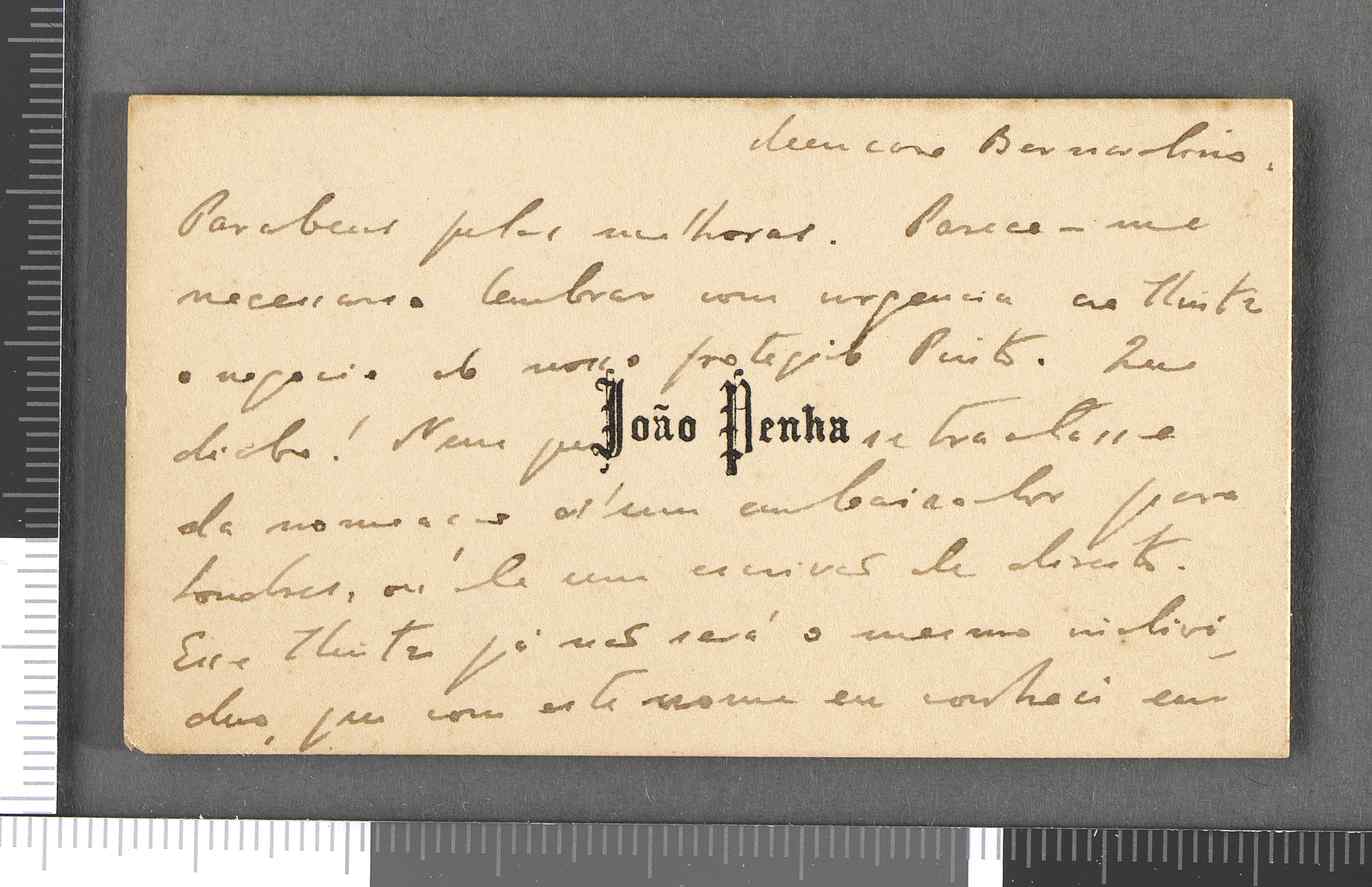 Meu caro Bernardino.
Parabens pelas melhoras. Parece-me
necessario lembrar com urgencia ao Hintze
o negocio do nosso protegido Pinto. Que
diabo! Nem que se tractasse
João Penha
da nomeação d'um embaixador para
Londres, ou de um escrivão de direito.
Esse Hintze já não será o mesmo indivi-
duo, que com este nome eu conheci em